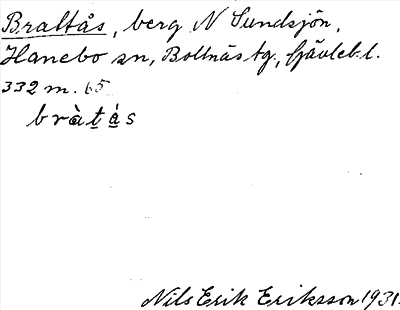 Braltås, berg N Sundsjön,
Hanebo sn, Bollnäs tg., Gävleb. l.
332 m. 65
bràṭá̤s
Nils Erik Eriksson 1931.